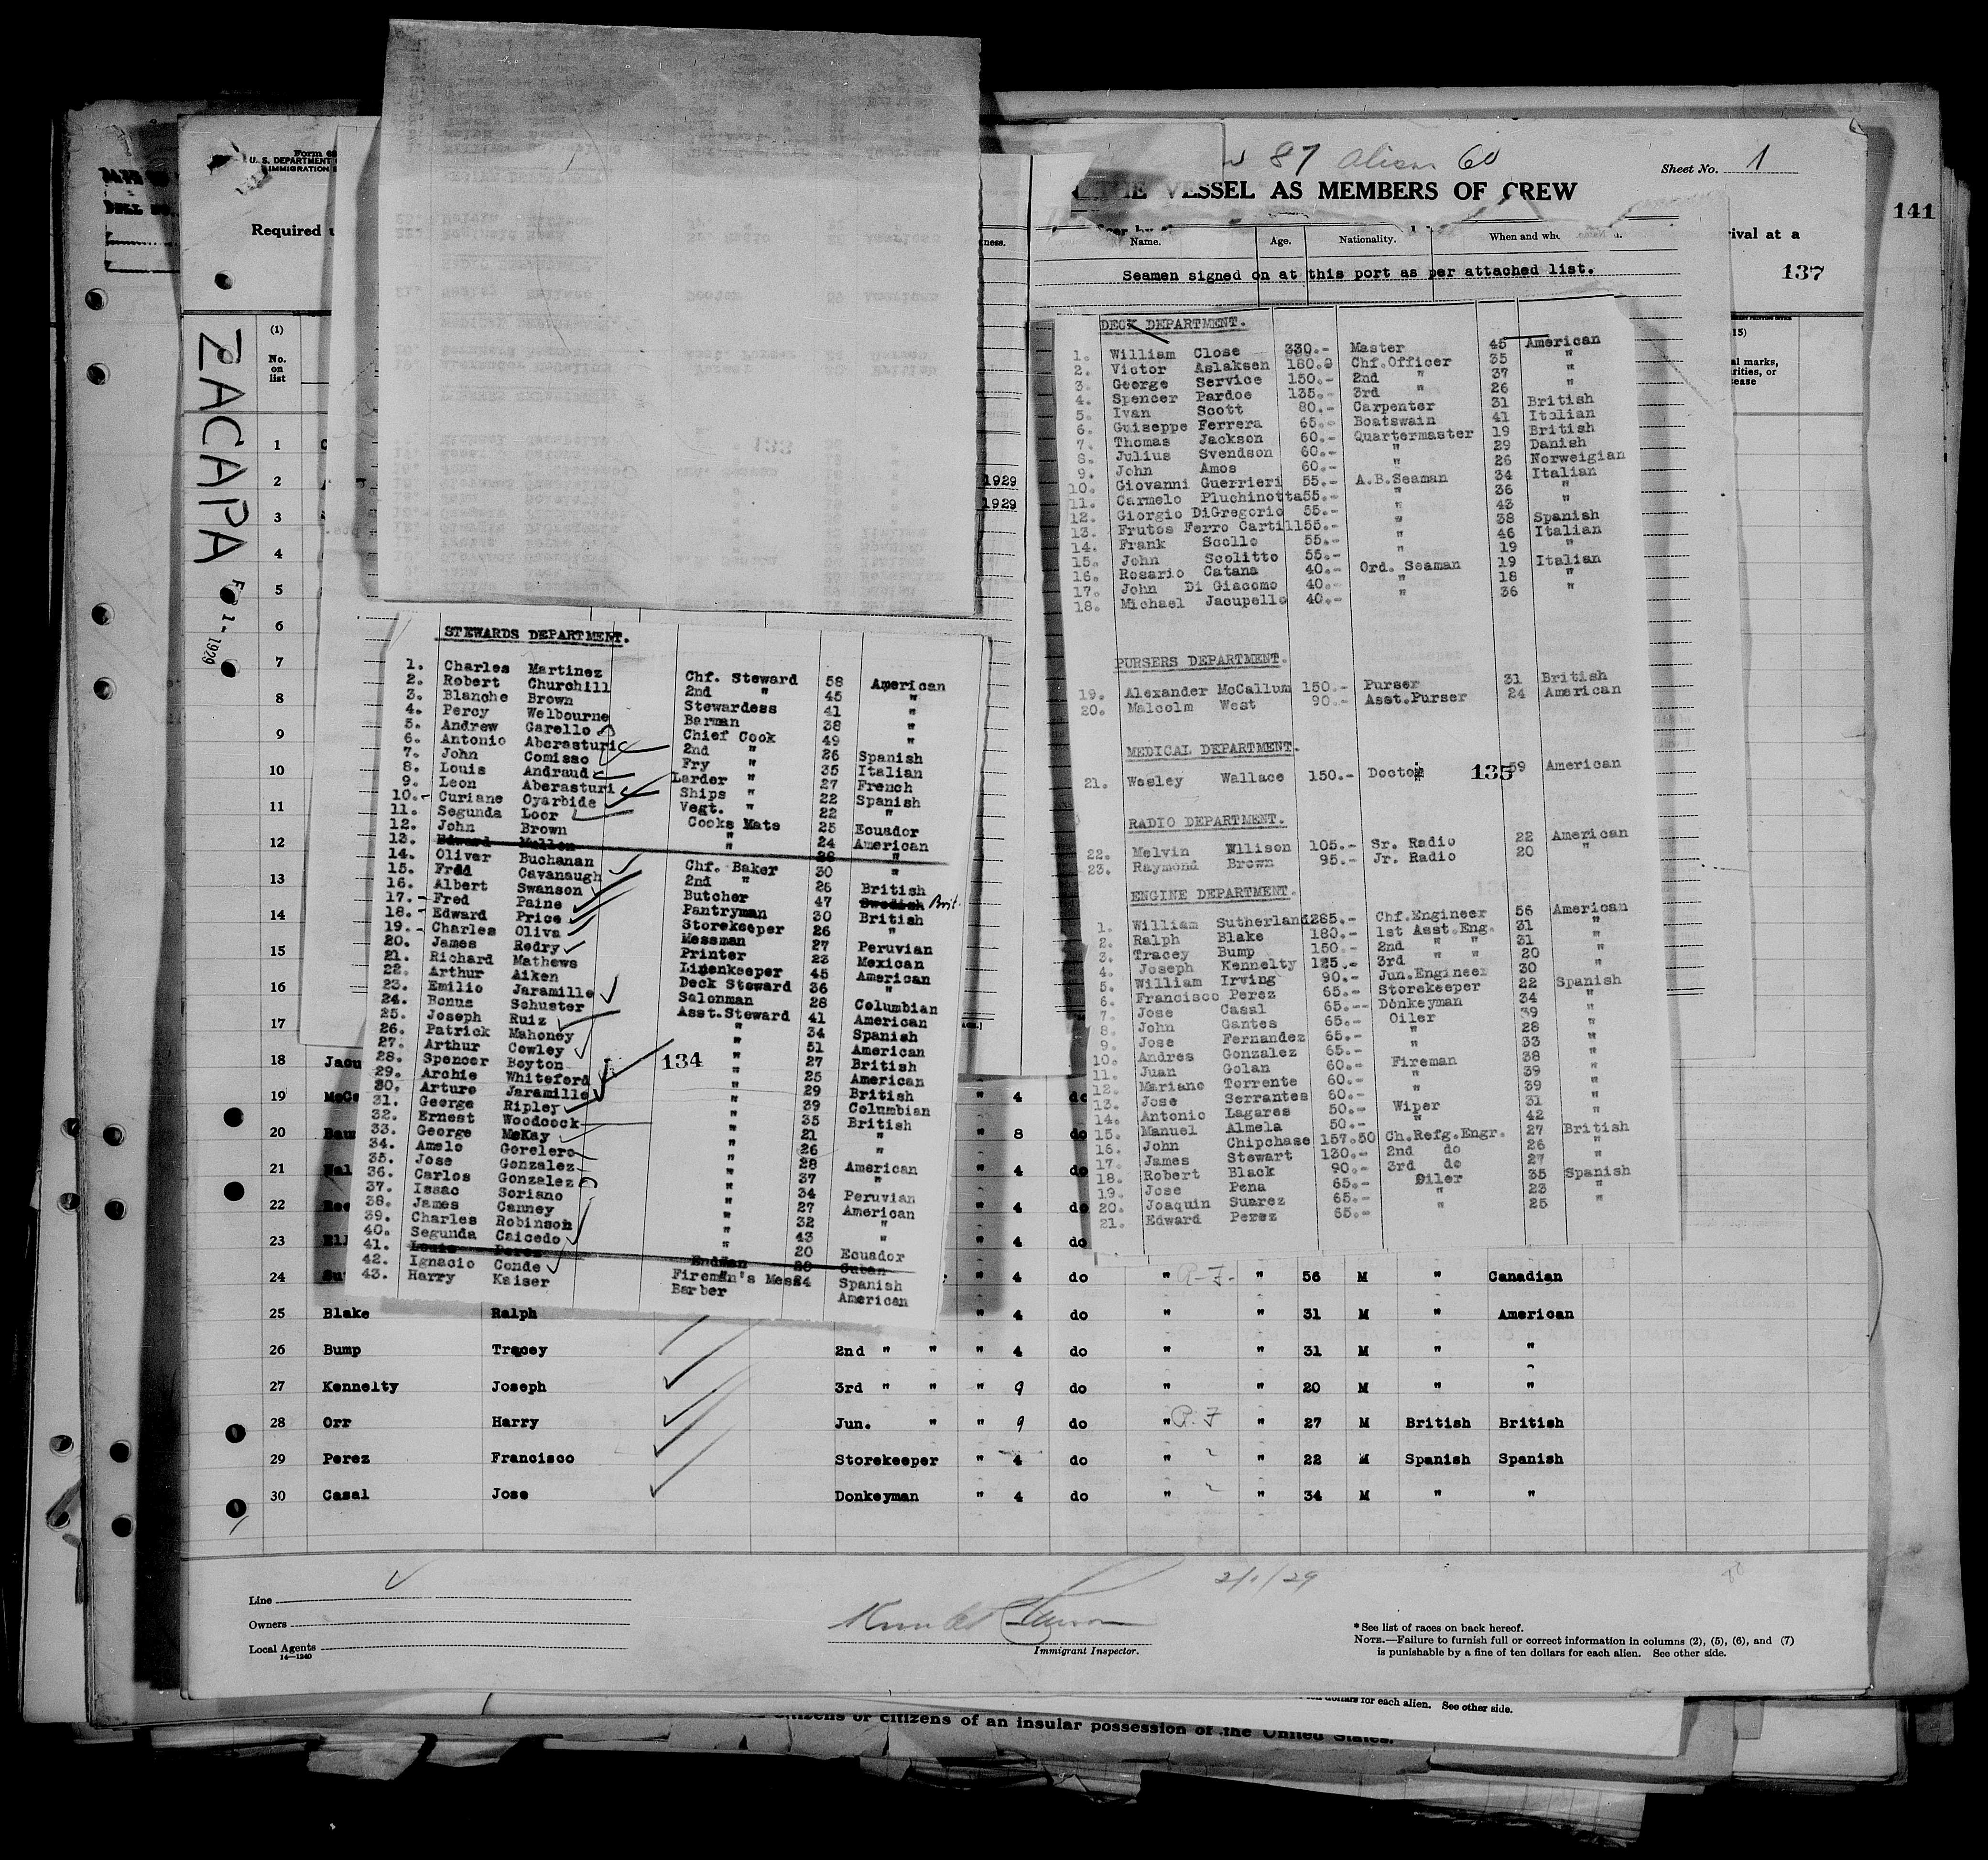 87 Alien 60
Sheet No. 1
THE VESSEL AS MEMBERS OF CREW
141
Form 68
U. S. DEPARTMENT
IMMIGRATION
Required
Name. Age. Nationality. When and
rival at a
137
Seamen signed on at this port as per attached list.
ZACAPA
1929
(1)
No.
on
list
1929
1929
DECK DEPARTMENT.
1. William Close 330.- Master 45 American
2. Victor Aslaksen 180.0 Chf.Officer 35 "
3. George Service 150.- 2nd " 37 "
4. Spencer Pardoe 135.- 3rd " 26 "
5. Ivan Scott 80.- Carpenter 31 British
6. Guiseppe Ferrera 65.- Boatswain 41 Italian
7. Thomas Jackson 60.- Quartermaster 19 British
8. Julius Svendson 60.- " 29 Danish
9. John Amos 60.- " 26 Norweigian
10. Giovanni Guerrieri 55.- A.B.Seaman 34 Italian
11. Carmelo Pluchinotta55.- " 36 "
12. Giorgio DiGregorio 55.- " 43 "
13. Frutos Ferro Cartill55.- " 38 Spanish
14. Frank Scollo 55.- " 46 Italian
15. John Scolitto 55.- " 19 "
16. Rosario Catana 40.- Ord. Seaman 19 Italian
17. John Di Giacomo 40.- " 18 "
18. Michael Jacupello 40.- " 36 "
PURSERS DEPARTMENT.
19. Alexander McCallum 150.- Purser 31 British
20. Malcolm West 90.- Asst.Purser 24 American
MEDICAL DEPARTMENT.
21. Wesley Wallace 150.- Doctor 135 59 American
RADIO DEPARTMENT.
22. Melvin Ellison 105.- Sr. Radio 22 American
23. Raymond Brown 95.- Jr. Radio 20 "
ENGINE DEPARTMENT.
1. William Sutherland285.- Chf.Engineer 56 American
2. Ralph Blake 180.- 1st Asst.Eng. 31 "
3. Tracey Bump 150.- 2nd " " 31 "
4. Joseph Kennelty 125.- 3rd " " 20 "
5. William Irving 90.- Jun.Engineer 30 "
6. Francisco Perez 65.- Storekeeper 22 Spanish
7. Jose Casal 65.- Donkeyman 34 "
8. John Gantes 65.- Oiler 39 "
9. Jose Fernandez 65.- " 28 "
10. Andres Gonzalez 65.- " 33 "
11. Juan Golan 60.- Fireman 38 "
12. Mariano Torrente 60.- " 39 "
13. Jose Serrantes 60.- " 39 "
14. Antonio Lagares 50.- Wiper 31 "
15. Manuel Almela 50.- " 42 "
16. John Chipchase 157.50 Ch.Refg.Engr. 27 British
17. James Stewart 130.- 2nd do 26 "
18. Robert Black 90.- 3rd do 27 "
19. Jose Pena 65.- Oiler 35 Spanish
20. Joaquin Suarez 65.- " 23 "
21. Edward Perez 65.- " 25 "
STEWARDS DEPARTMENT.
1. Charles Martinez Chf. Steward 58 American
2. Robert Churchill 2nd " 45 "
3. Blanche Brown Stewardess 41 "
4. Percy Welbourne Barman 38 "
5. Andrew Garello Chief Cook 49 "
6. Antonio Aberasturi 2nd " 26 Spanish
7. John Comisso Fry " 35 Italian
8. Louis Andraud Larder " 27 French
9. Leon Aberasturi Ships " 22 Spanish
10.- Curiane Oyarbide Vegt. " 22 "
11. Segunda Loor Cooks Mate 25 Ecuador
12. John Brown " 24 American
13. Edward Mullen 28 "
14. Oliver Buchanan Chf. Baker 30 "
15. Fred Cavanaugh 2nd " 26 British
16. Albert Swanson Butcher 47 Swedish Brit.
17.- Fred Paine Pantryman 30 British
18.- Edward Price Storekeeper 26 "
19.- Charles Oliva Messman 27 Peruvian
20. James Redry Printer 23 Mexican
21. Richard Mathews Linenkeeper 45 American
22. Arthur Aiken Deck Steward 36 "
23. Emilio Jaramille Salonman 28 Columbian
24. Bonus Schuster Asst.Steward 41 American
25. Joseph Ruiz " 34 Spanish
26. Patrick Mahoney " 51 American
27. Arthur Cowley " 27 British
28. Spencer Boyton " 25 American
29. Archie Whiteford " 29 British
30. Arturo Jaramille " 39 Columbian
31. George Ripley " 35 British
32. Ernest Woodcock " 21 "
33. George McKay " 26 "
34. Amelo Gorelero " 28 American
35. Jose Gonzalez " 37 "
36. Carlos Gonzalez " 34 Peruvian
37. Issac Soriano " 27 American
38. James Canney " 32 "
39. Charles Robinson " 43 "
40. Segunda Caicedo " 20 Ecuador
41. Louis Perez Endman 20 Cuban
42. Ignacio Conde Firemen's Mess 24 Spanish
43. Harry Kaiser Barber American
134
1
2
3
4
5
6
7
8
9
10
11
12
13
14
15
16
17
18 Jacu
19 McCa " 4 do
20 Bau " 8 do
21 Wal " 4 do
22 " 4 do
23 Ell " 4 do
24 Su " 4 do " P.F. " 56 M " Canadian
25 Blake Ralph " 4 do " " 31 M " American
26 Bump Tracey 2nd " " " 4 do " " 31 M " "
27 Kennelty Joseph 3rd " " " 9 do " " 20 M " "
28 Orr Harry Jun. " " 9 do " P.F " 27 M British British
29 Perez Francisco Storekeeper " 4 do " " 22 M Spanish Spanish
30 Casal Jose Donkeyman " 4 do " " 34 M " "
2/1/29
Line
Owners
Local Agents
14—1240
Immigrant Inspector.
* See list of races on back hereof.
NOTE.—Failure to furnish full or correct information in columns (2), (5), (6), and (7)
is punishable by a fine of ten dollars for each alien. See other side.
dollars for each alien. See other side.
citizens or citizens of an insular possession of the United States.